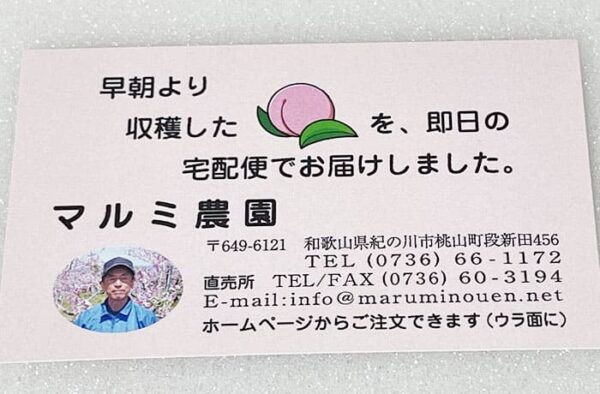 早朝より
収穫した を、即日の
宅配便でお届けしました。
マルミ農園
〒649-6121 和歌山県紀の川市桃山町段新田456
TEL (0736) 66-1172
直売所 TEL/FAX (0736) 60-3194
E-mail:info@maruminouen.net
ホームページからご注文できます(ウラ面に)